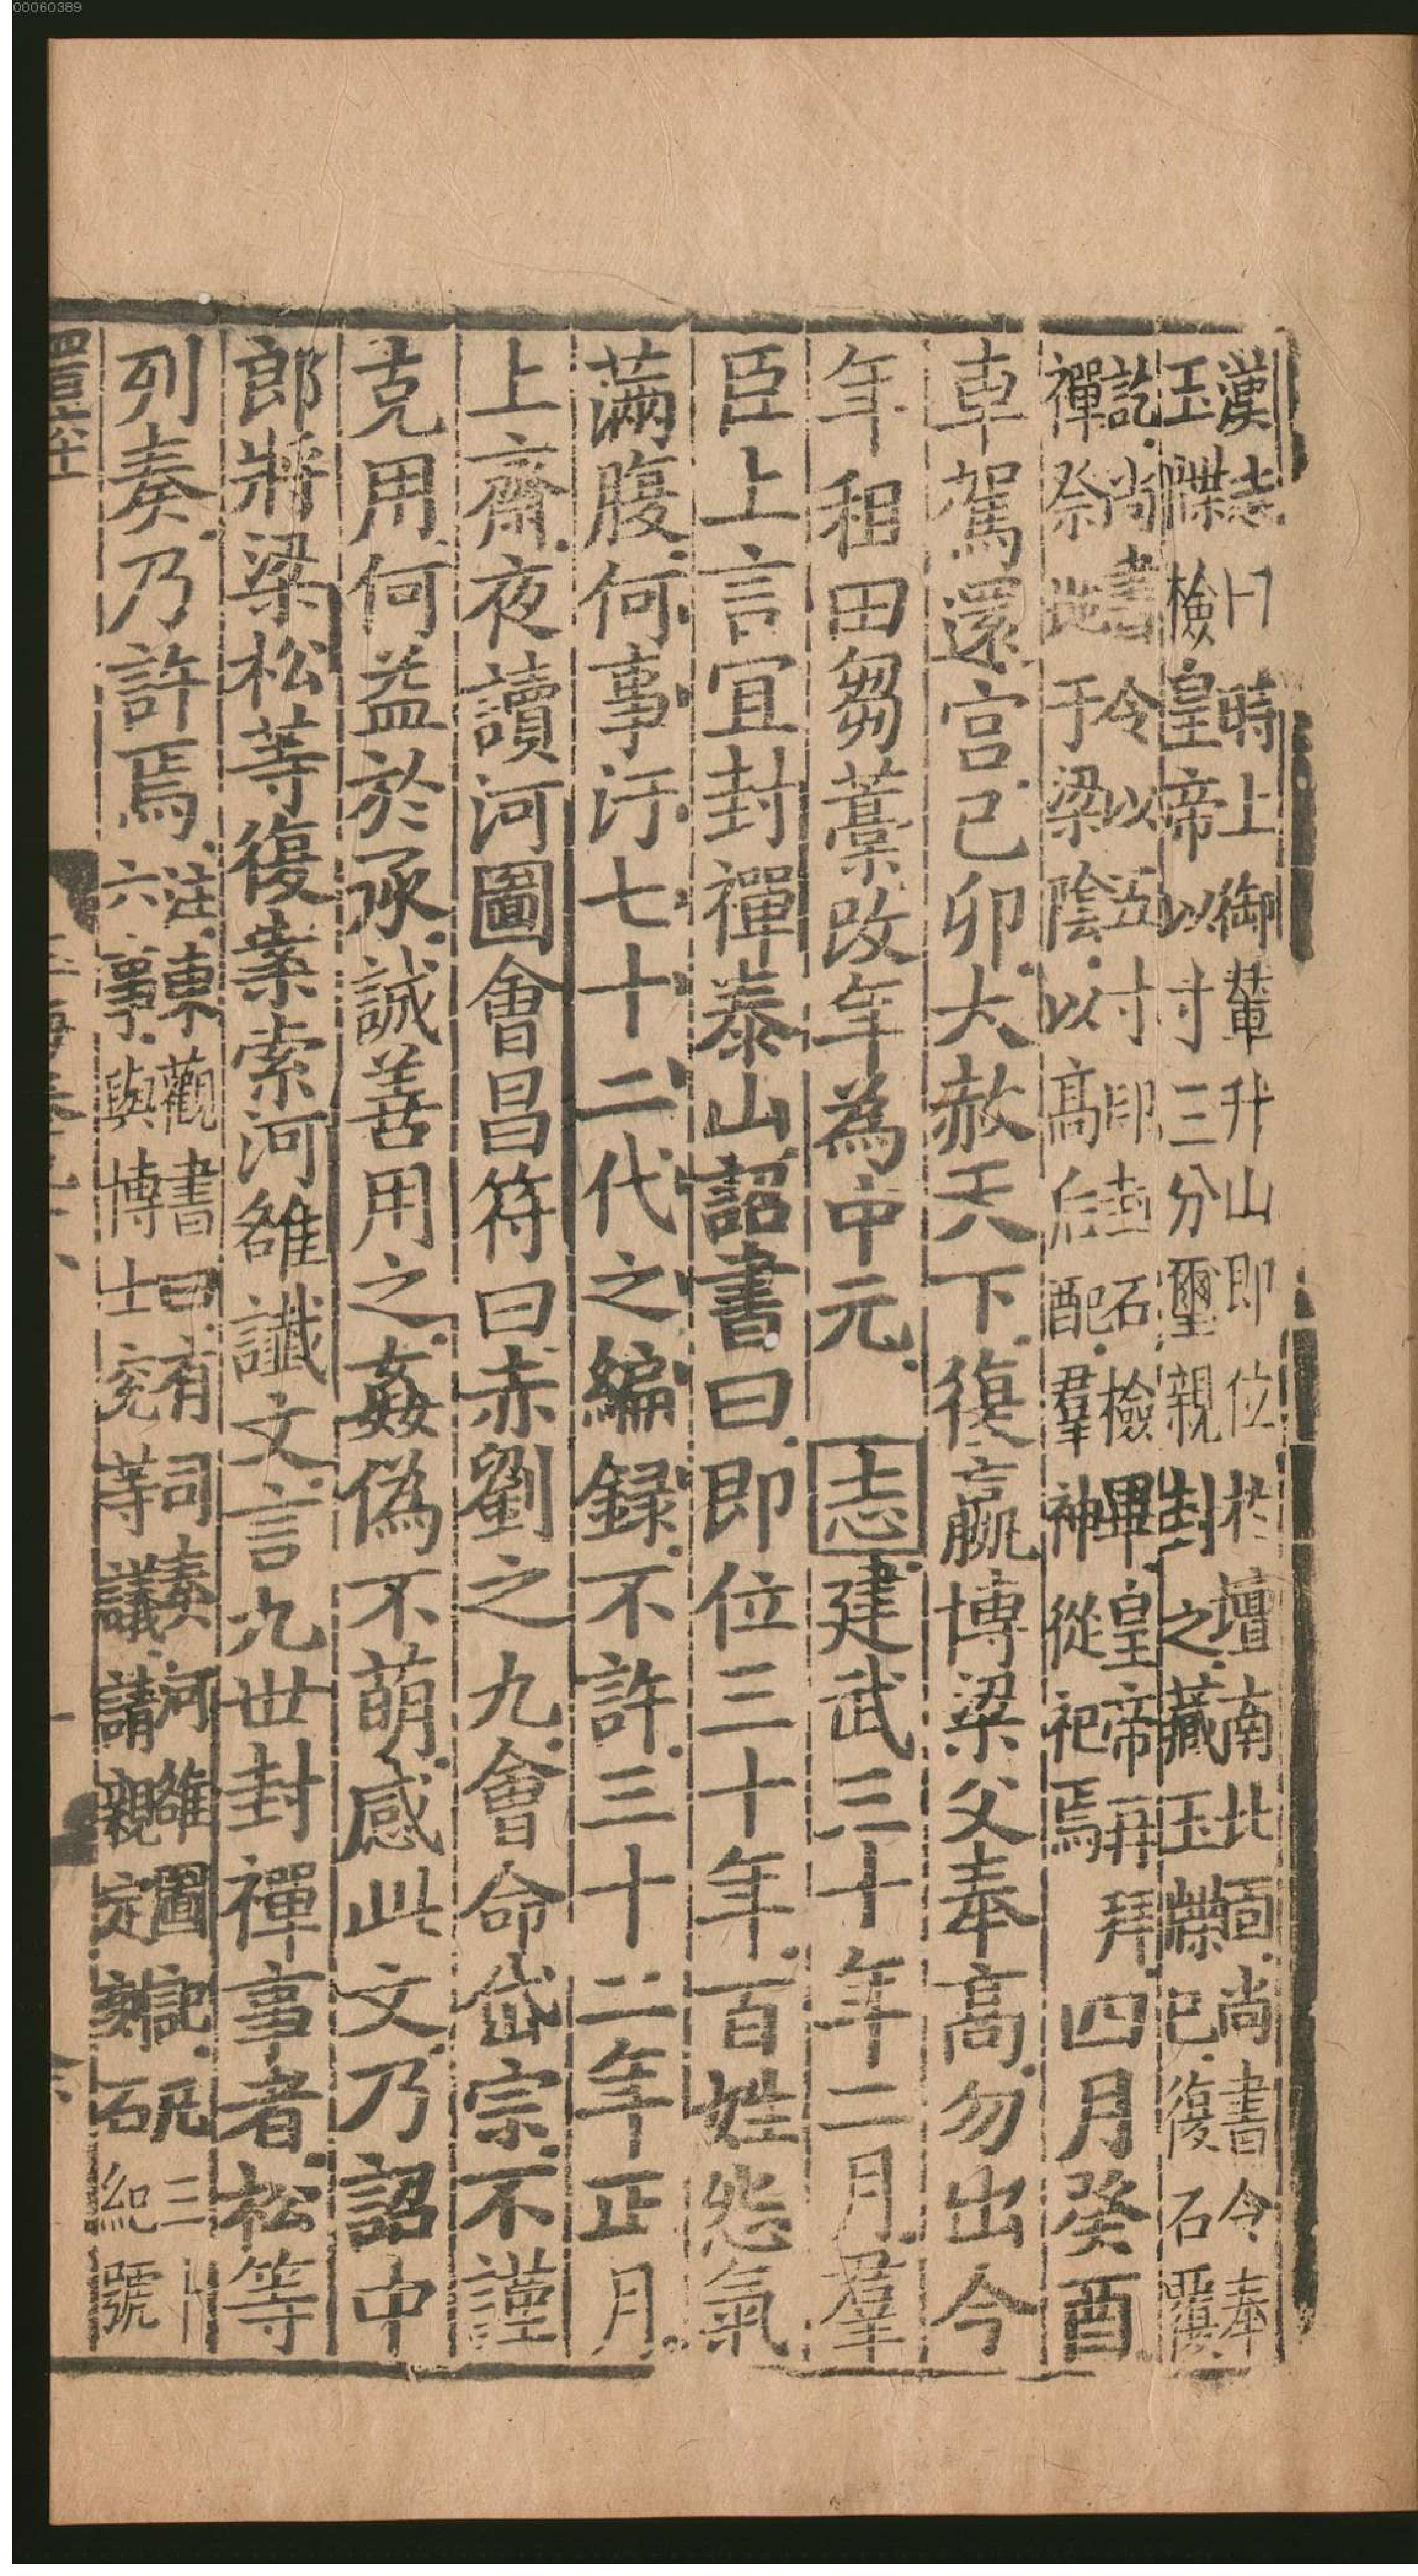 00060389
漢志曰時上御輦升山即位於壇南北面尚書令奉
玉牒檢皇帝以寸三分璽親封之藏玉牒已復石覆
訖尚書令以五寸印封石檢畢皇帝再拜
禪祭地于梁陰以高后配羣神從祀焉
四月癸酉
車駕還宮己卯大赦天下復嬴博梁父奉高勿出今
年租田芻藁改年為中元 志建武三十年二月羣
臣上言宜封禪泰山詔書曰即位三十年百姓怨氣
滿腹何事汙七十二代之編録不許三十二年正月
上齋夜讀河圖會昌符曰赤劉之九會命岱宗不謹
克用何益於承誠善用之姦偽不萌感此文乃詔中
郎將梁松等復案索河雒讖文言九世封禪事者松等
列奏乃許焉
注東觀書曰有司奏河雒圖記 三十
六事與博士充等議請親定刻石紀號